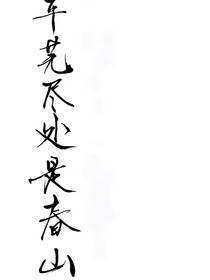 平芜尽处是春山